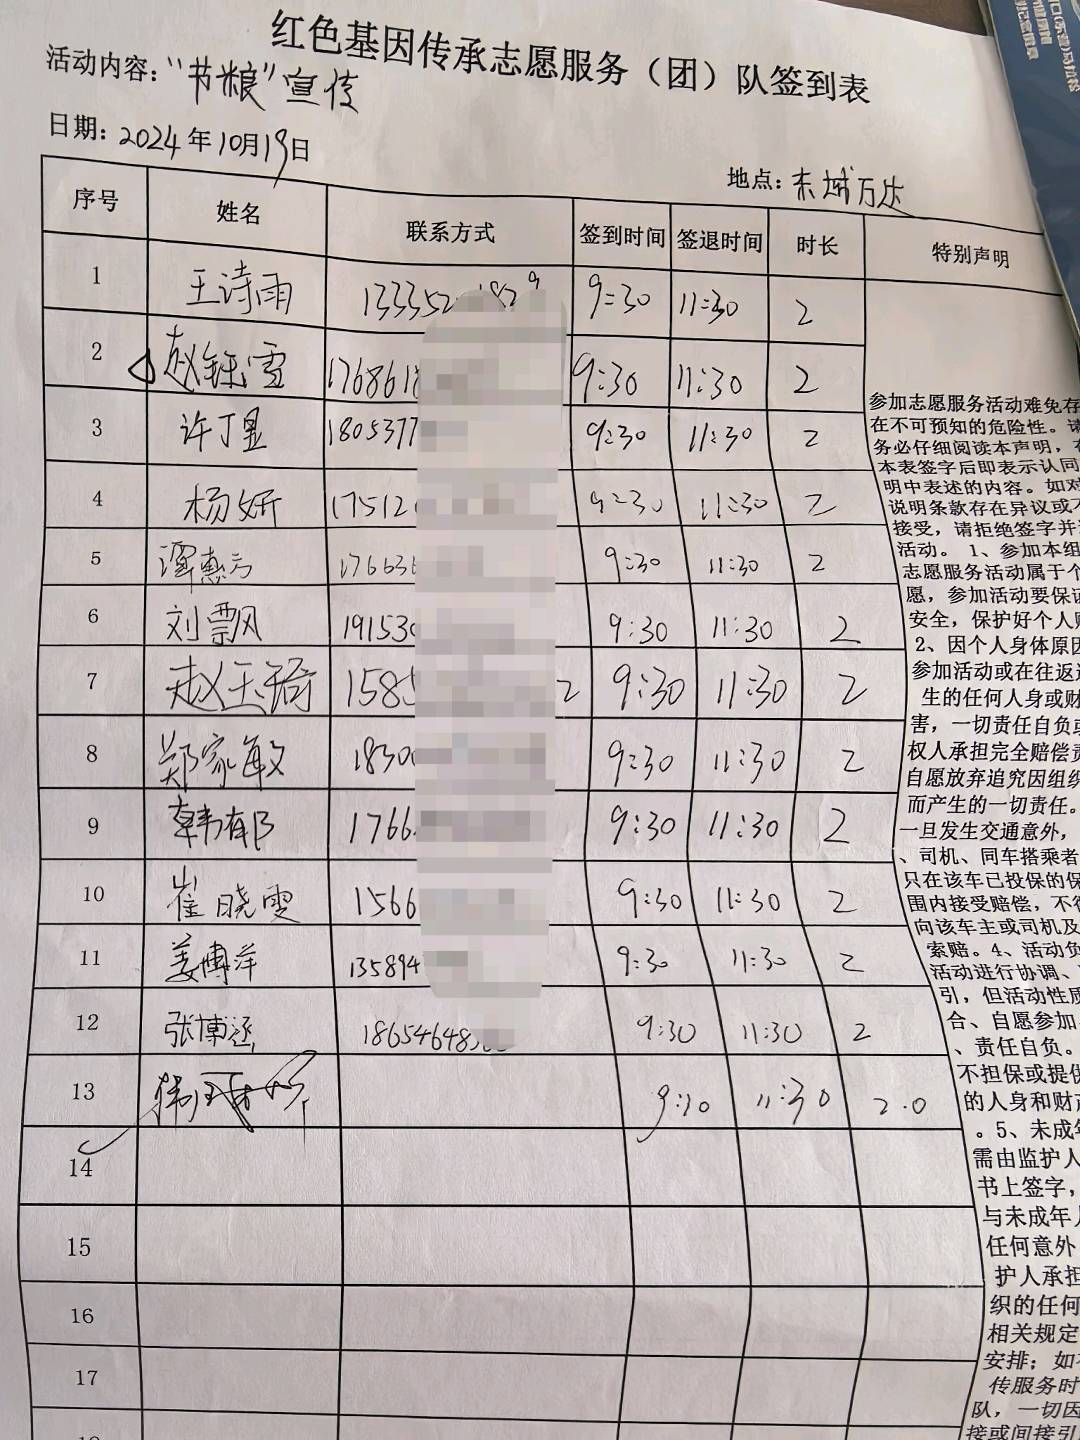 红色基因传承志愿服务（团）队签到表
活动内容：“节粮”宣传
日期：2024年10月19日
地点：东城万达
序号 姓名 联系方式 签到时间 签退时间 时长 特别声明
1 王诗雨 9:30 11:30 2
2 赵钰雪 1768618 9:30 11:30 2
3 许丁昱 1805377 9:30 11:30 2
4 杨妍 17512 9:30 11:30 2
5 谭惠方 176636 9:30 11:30 2
6 刘飘风 191530 9:30 11:30 2
7 赵玉琦 1585 2 9:30 11:30 2
8 郑家敏 18300 9:30 11:30 2
9 韩 1766 9:30 11:30 2
10 崔晓雯 1566 9:30 11:30 2
11 姜博萍 135894 9:30 11:30 2
12 张博涵 18654648 9:30 11:30 2
13 9:30 11:30 2.0
14
15
16
17
参加志愿服务活动难免存
在不可预知的危险性。请
务必仔细阅读本声明，
本表签字后即表示认同
明中表述的内容。如对
说明条款存在异议或不
接受，请拒绝签字并
活动。1、参加本组
志愿服务活动属于个
愿，参加活动要保证
安全，保护好个人财
2、因个人身体原因
参加活动或在往返途
生的任何人身或财
害，一切责任自负或
权人承担完全赔偿责
自愿放弃追究因组织
而产生的一切责任。
一旦发生交通意外，
、司机、同车搭乘者
只在该车已投保的保
围内接受赔偿，不得
向该车主或司机及
索赔。4、活动负
活动进行协调、
引，但活动性质
合、自愿参加
、责任自负。
不担保或提供
的人身和财产
。5、未成年
需由监护人
书上签字，
与未成年人
任何意外
护人承担
织的任何
相关规定
安排；如
传服务时
队，一切因
接或间接引